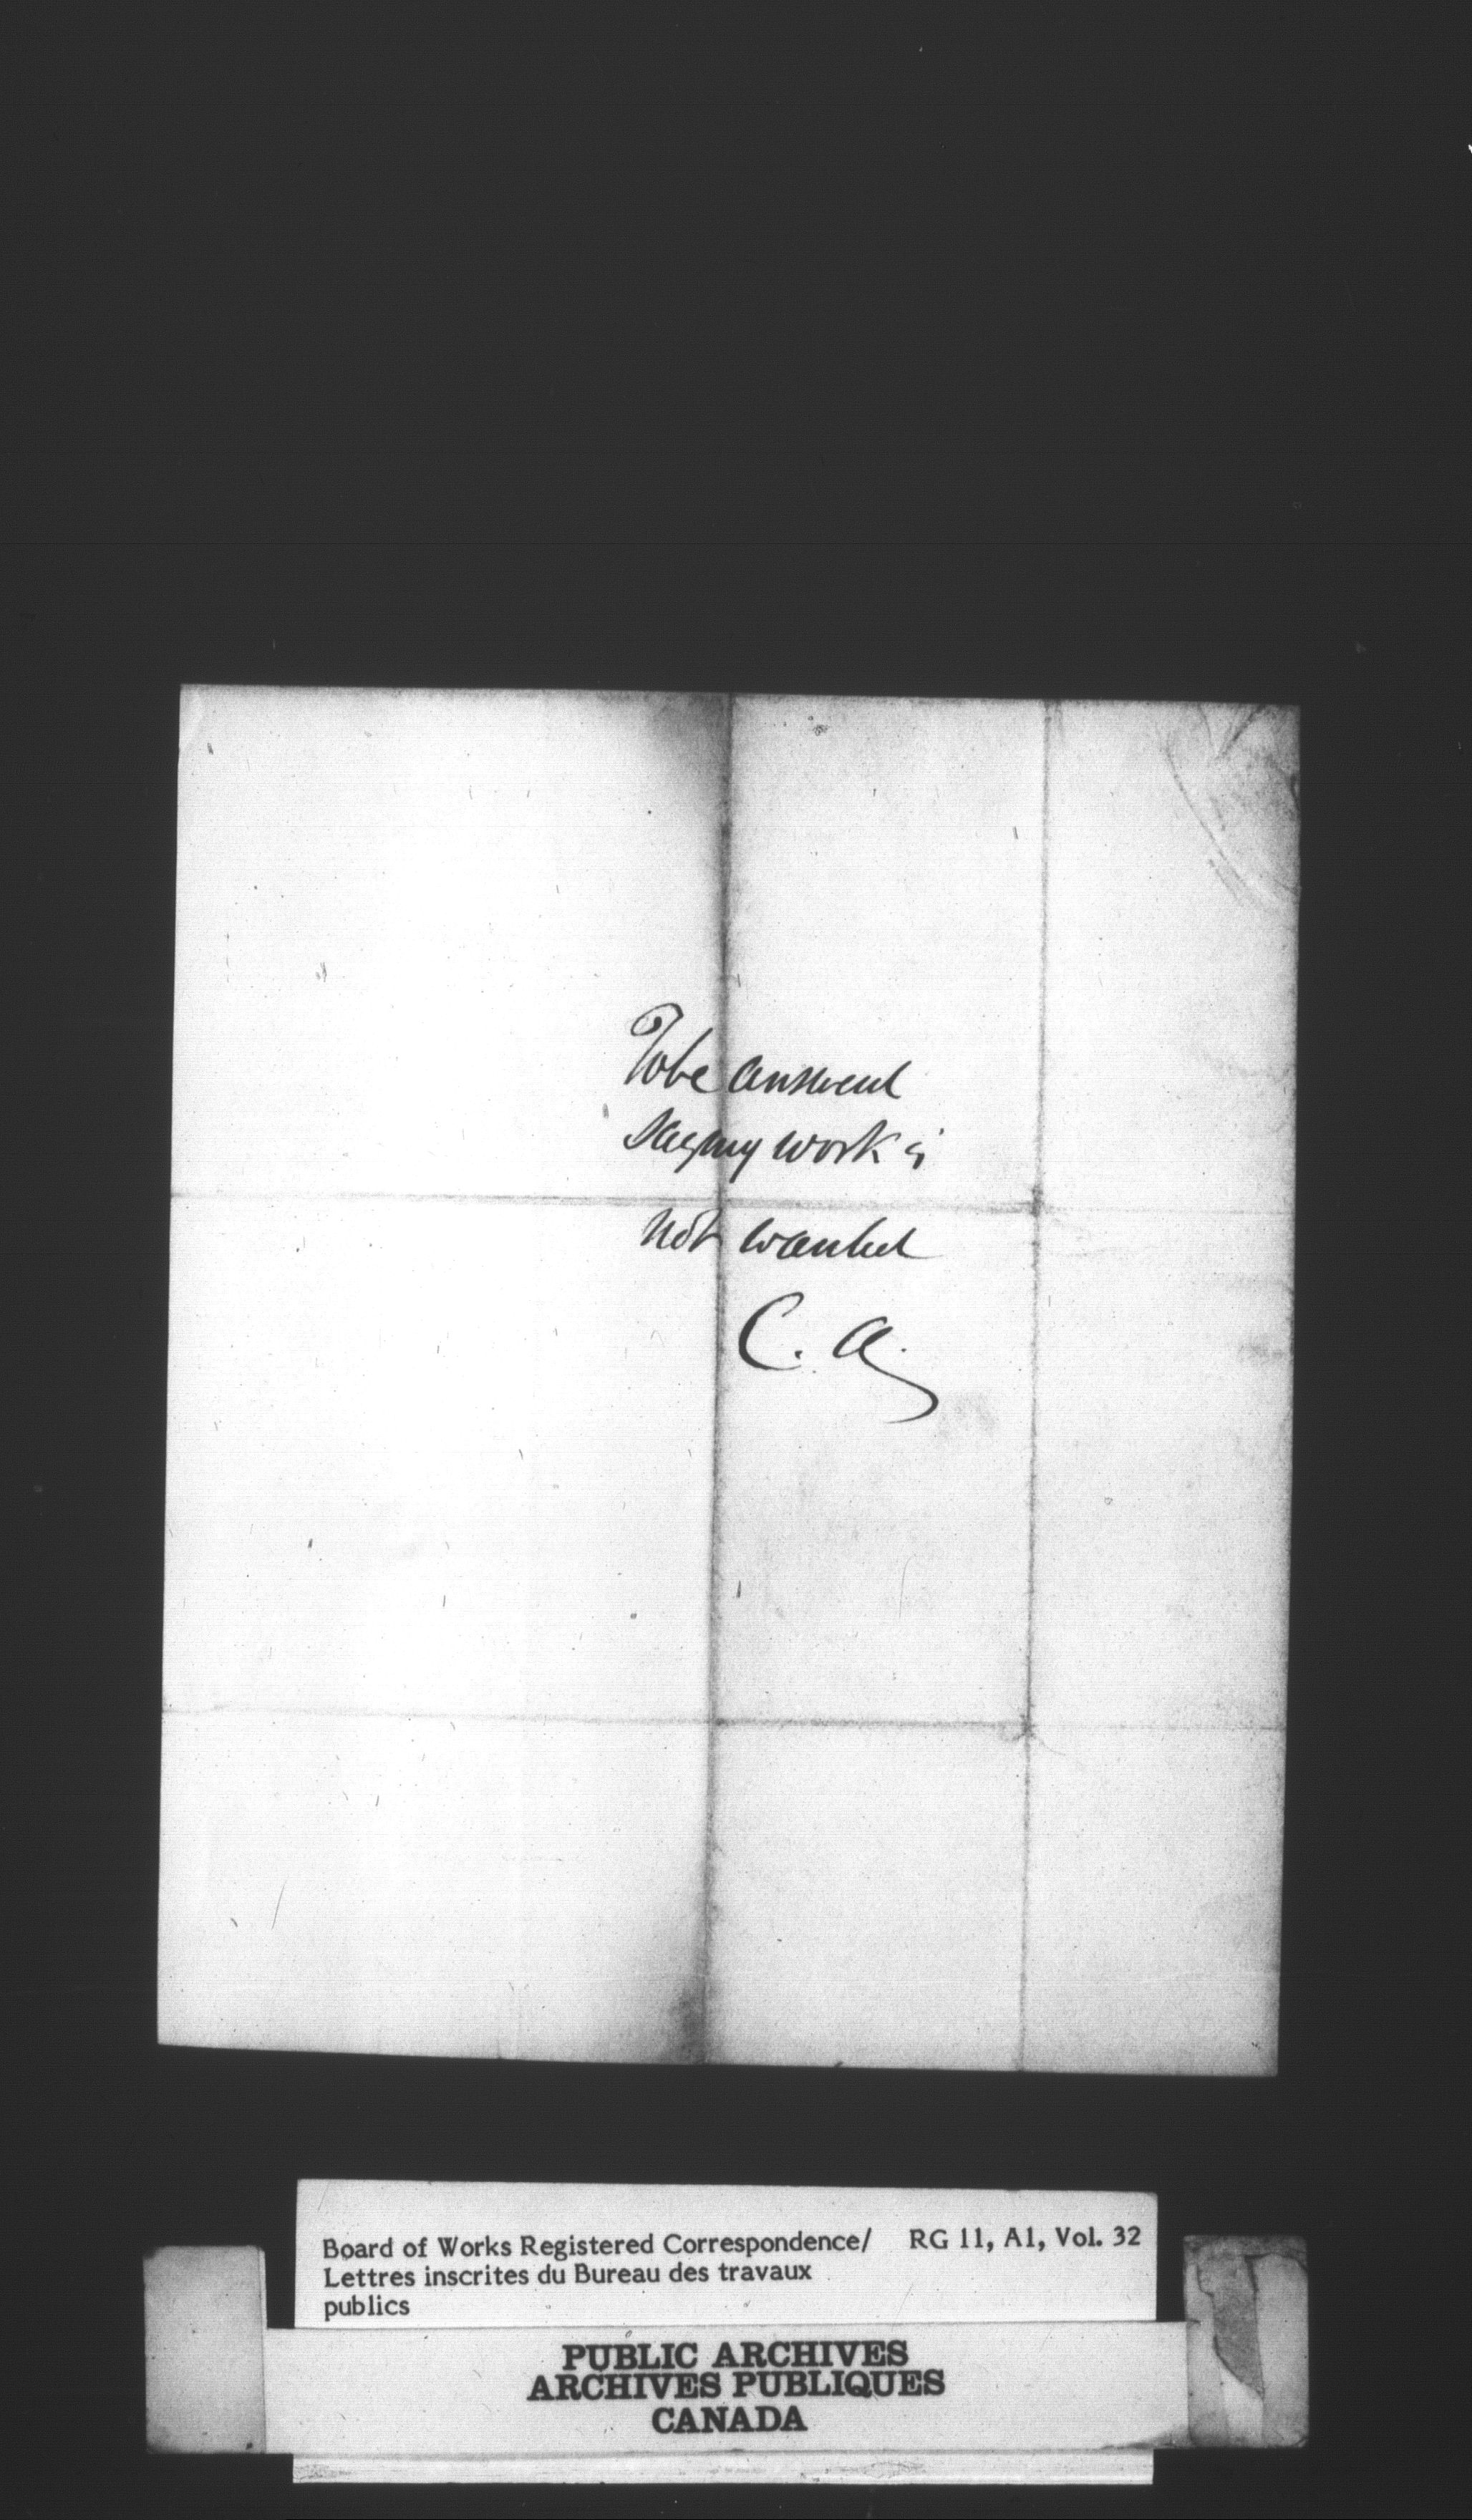 To be answered
saying work is
not wanted
C. A.
Board of Works Registered Correspondence/ RG 11, A1, Vol. 32
Lettres inscrites du Bureau des travaux
publics
PUBLIC ARCHIVES
ARCHIVES PUBLIQUES
CANADA